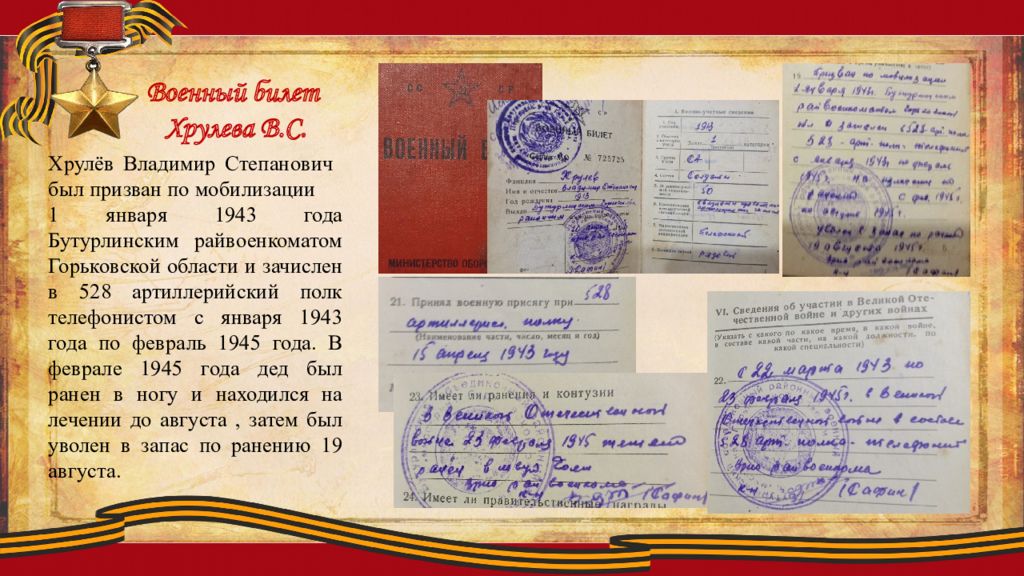 Военный билет
Хрулева В.С.
Хрулёв Владимир Степанович
был призван по мобилизации
1 января 1943 года
Бутурлинским райвоенкоматом
Горьковской области и зачислен
в 528 артиллерийский полк
телефонистом с января 1943
года по февраль 1945 года. В
феврале 1945 года дед был
ранен в ногу и находился на
лечении до августа , затем был
уволен в запас по ранению 19
августа.
СС СР
ВОЕННЫЙ
МИНИСТЕРСТВО ОБОР
БИЛЕТ
№ 725725
Фамилия Хрулев
Имя и отчество Владимир Степанович
Год рождения 1913
Выдан Бутурлинским
I. Военно-учетные сведения
1913
1
СА
Солдаты
50
годен
19 Призван по мобилизации
января 1943г. Бутурлинским
райвоенкоматом
и зачислен 528 арт. полк
528 арт. телефонист
с января 1943г. по февраль
1945г. на излечении
с фев. 1945г.
по август 1945г.
уволен в запас по
19 августа 1945г.
врио райвоенкома
к-н (Сафин)
21. Принял военную присягу при 528
артиллерийск. полку.
(Наименование части, число, месяц и год)
15 апреля 1943 году
23. Имеет ли ранения и контузии
в Великой Отечественной
войне 23 февраля 1945 тяжело
ранен в левую
врио райвоенкома
к-н (Сафин)
24. Имеет ли правительственные награды
VI. Сведения об участии в Великой Оте-
чественной войне и других войнах
(Указать с какого по какое время, в какой войне,
в составе какой части, на какой должности, по
какой специальности)
22. с 22 марта 1943 по
23 февраля 1945г. в Великой
Отечественной войне в составе
528 арт. полка - телефонист
врио райвоенкома
к-н (Сафин)